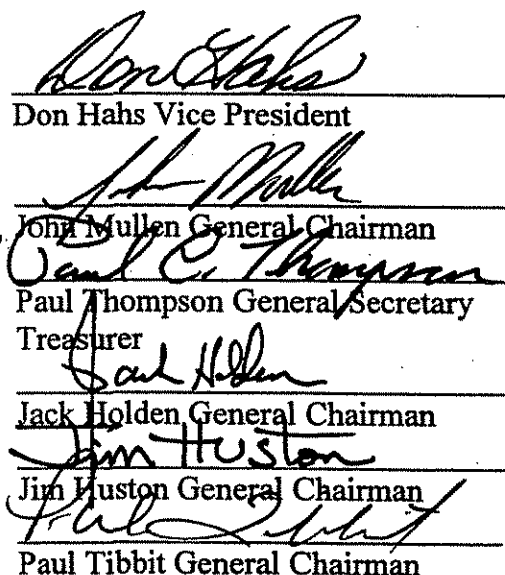 Don Hahs
Don Hahs Vice President
John Mullen
John Mullen General Chairman
Paul C. Thompson
Paul Thompson General Secretary
Treasurer
Jack Holden
Jack Holden General Chairman
Jim Huston
Jim Huston General Chairman
Paul Tibbit
Paul Tibbit General Chairman